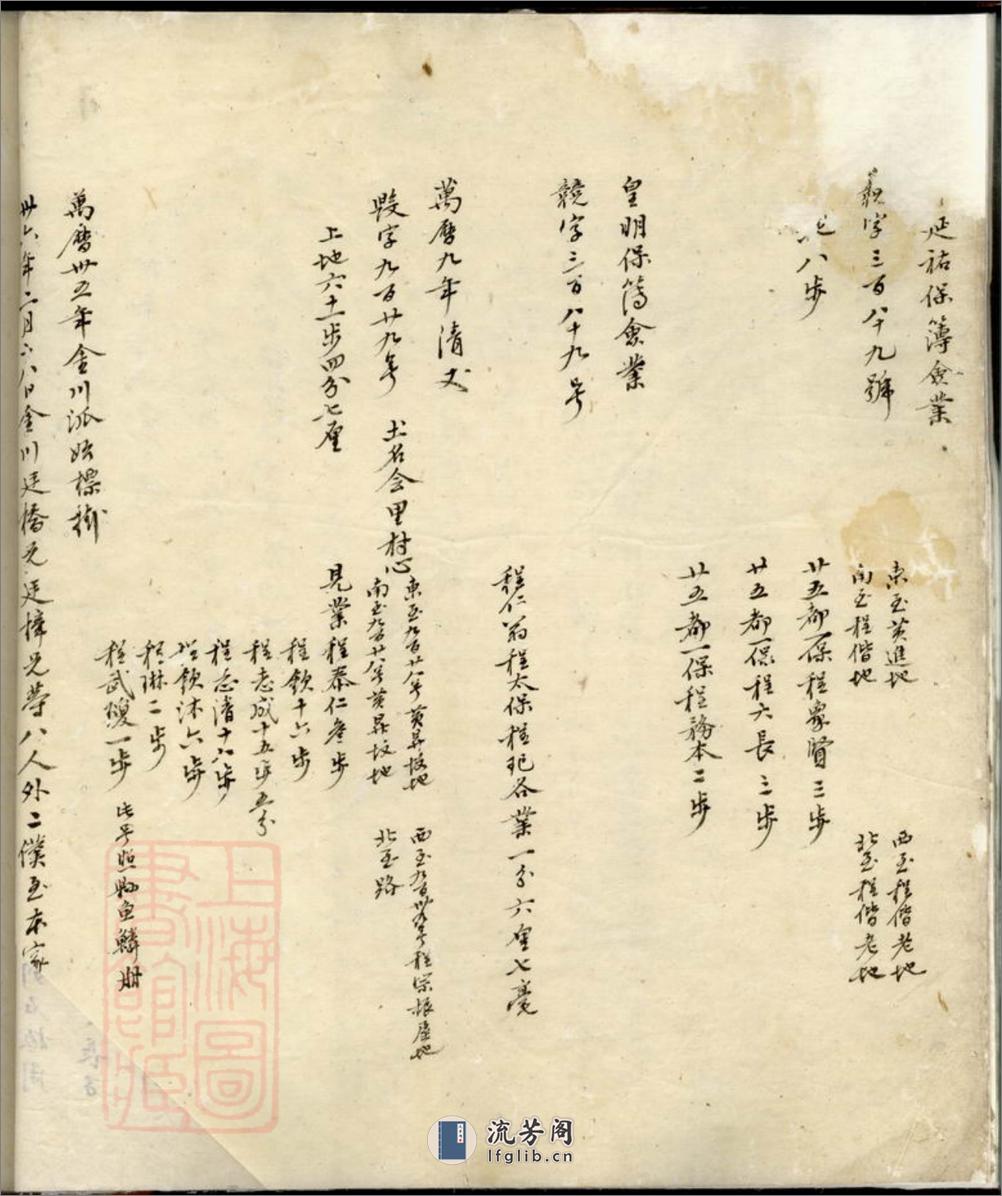 延祐保簿僉業
字三百八十九號
東至黃進地
西至程偕老地
南至程偕地
北至程偕老地
八步
廿五都一保程象賢三步
廿五都一保程六長三步
廿五都一保程務本二步
皇明保簿僉業
競字三百八十九号
程仁翁程太保程玘各業一分六厘七毫
萬曆九年清丈
毀字九百廿九号 土名会里村心
東至九百廿八号黃昇墳地
西至九百卅号程宗振屋地
南至九百廿八号黃昇墳地
北至路
上地六十一步四分七厘
見業程泰仁叁步
程欽十六步
程志成十五步五分
程志清十六步
程欽沐六步
程琳二步
程武 一步
萬曆卅五年金川派始標掛
卅六年二月六八日金川廷橋兄廷樟兄等八人外二僕至本家
上海圖
書館藏
流芳阁
lfglib.cn